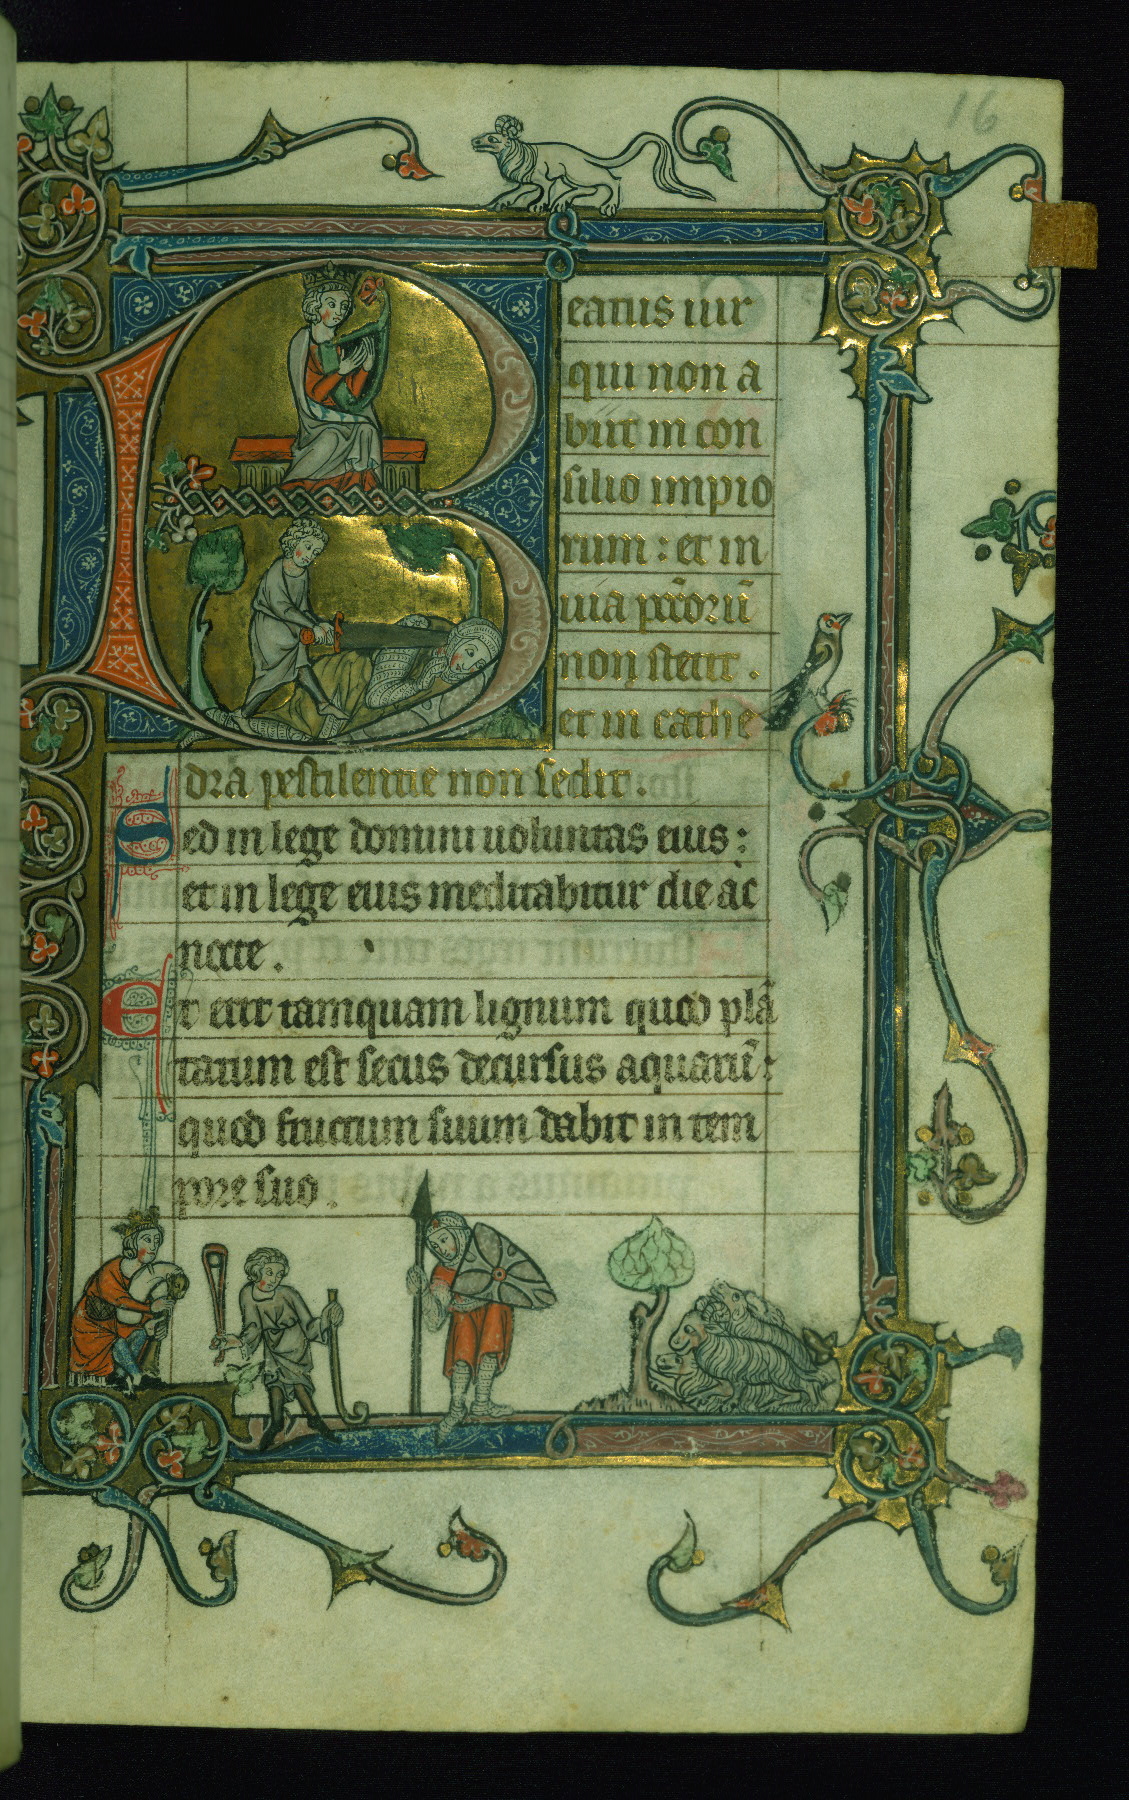 16
Beatus uir
qui non a
biit in con
silio impio
rum : et in
uia pctorū
non stetit .
et in cathe
dra pestilentie non sedit .
Sed in lege domini uoluntas eius :
et in lege eius meditabitur die ac
nocte .
Et erit tamquam lignum quod plā
tatum est secus decursus aquarū :
quod fructum suum dabit in tem
pore suo .